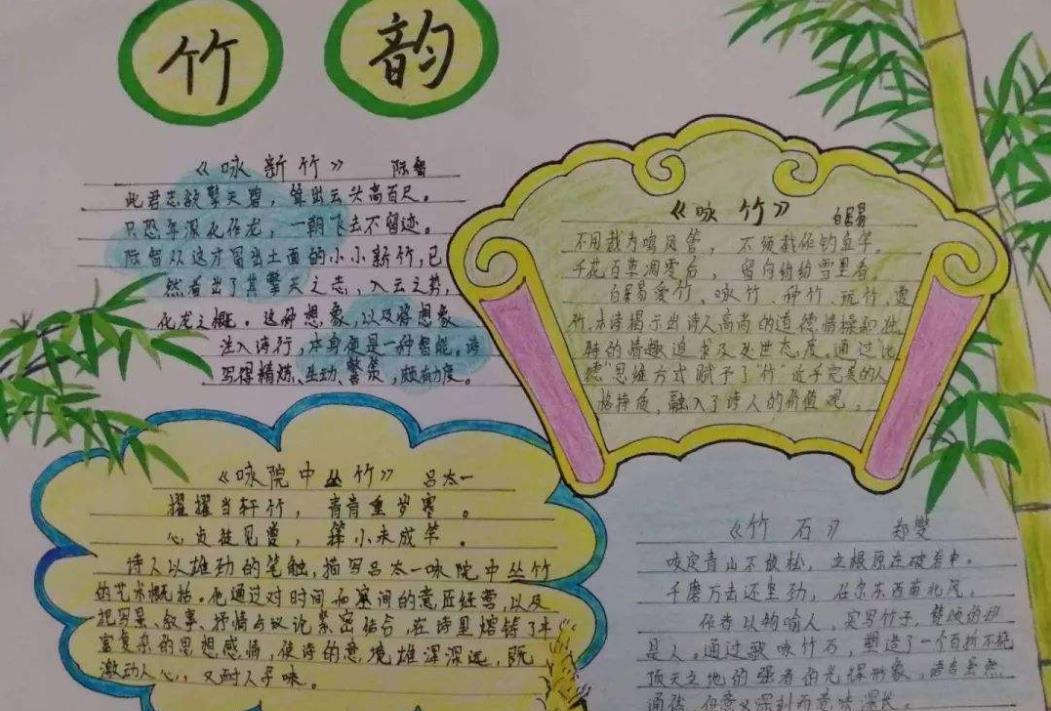 竹 韵
《咏新竹》 陈訾
此君志欲擎天碧,耸出云头高百尺。
只恐年深化作龙,一朝飞去不留迹。
陈訾从这才冒出土面的小小新竹,已
然看出了其擎天之志,入云之势,
化龙之概。这种想象,以及将想象
注入诗行,本身便是一种智能。诗
写得精炼、生动、紧凑,颇有力度。
《咏竹》 白居易
不用裁为鸣凤管,不须截作钓鱼竿。
千花百草凋零后,留向纷纷雪里看。
白居易爱竹、咏竹、种竹、玩竹,
竹,本诗揭示出诗人高尚的道德情操和独
特的情趣追求及处世态度,通过"比
德"思维方式赋予了"竹"近乎完美的人
格特质,融入了诗人的价值观。
《咏院中丛竹》 吕太一
擢擢当轩竹,青青重岁寒。
心贞徒见赏,箨小未成竿。
诗人以雄劲的笔触,描写吕太一咏院中丛竹
的艺术概括。他通过对时间和空间的意匠经营,以及
把写景、叙事、抒情与议论紧密结合,在诗里熔铸了丰
富复杂的思想感情,使诗的意境雄浑深远,既
激动人心,又耐人寻味。
《竹石》 郑燮
咬定青山不放松,立根原在破岩中。
千磨万击还坚劲,任尔东西南北风。
作者以物喻人,实写竹子,赞颂的却
是人。通过歌咏竹石,塑造了一个百折不挠
顶天立地的强者的光辉形象,语言虽然
通俗,但意义深刻而意味深长。